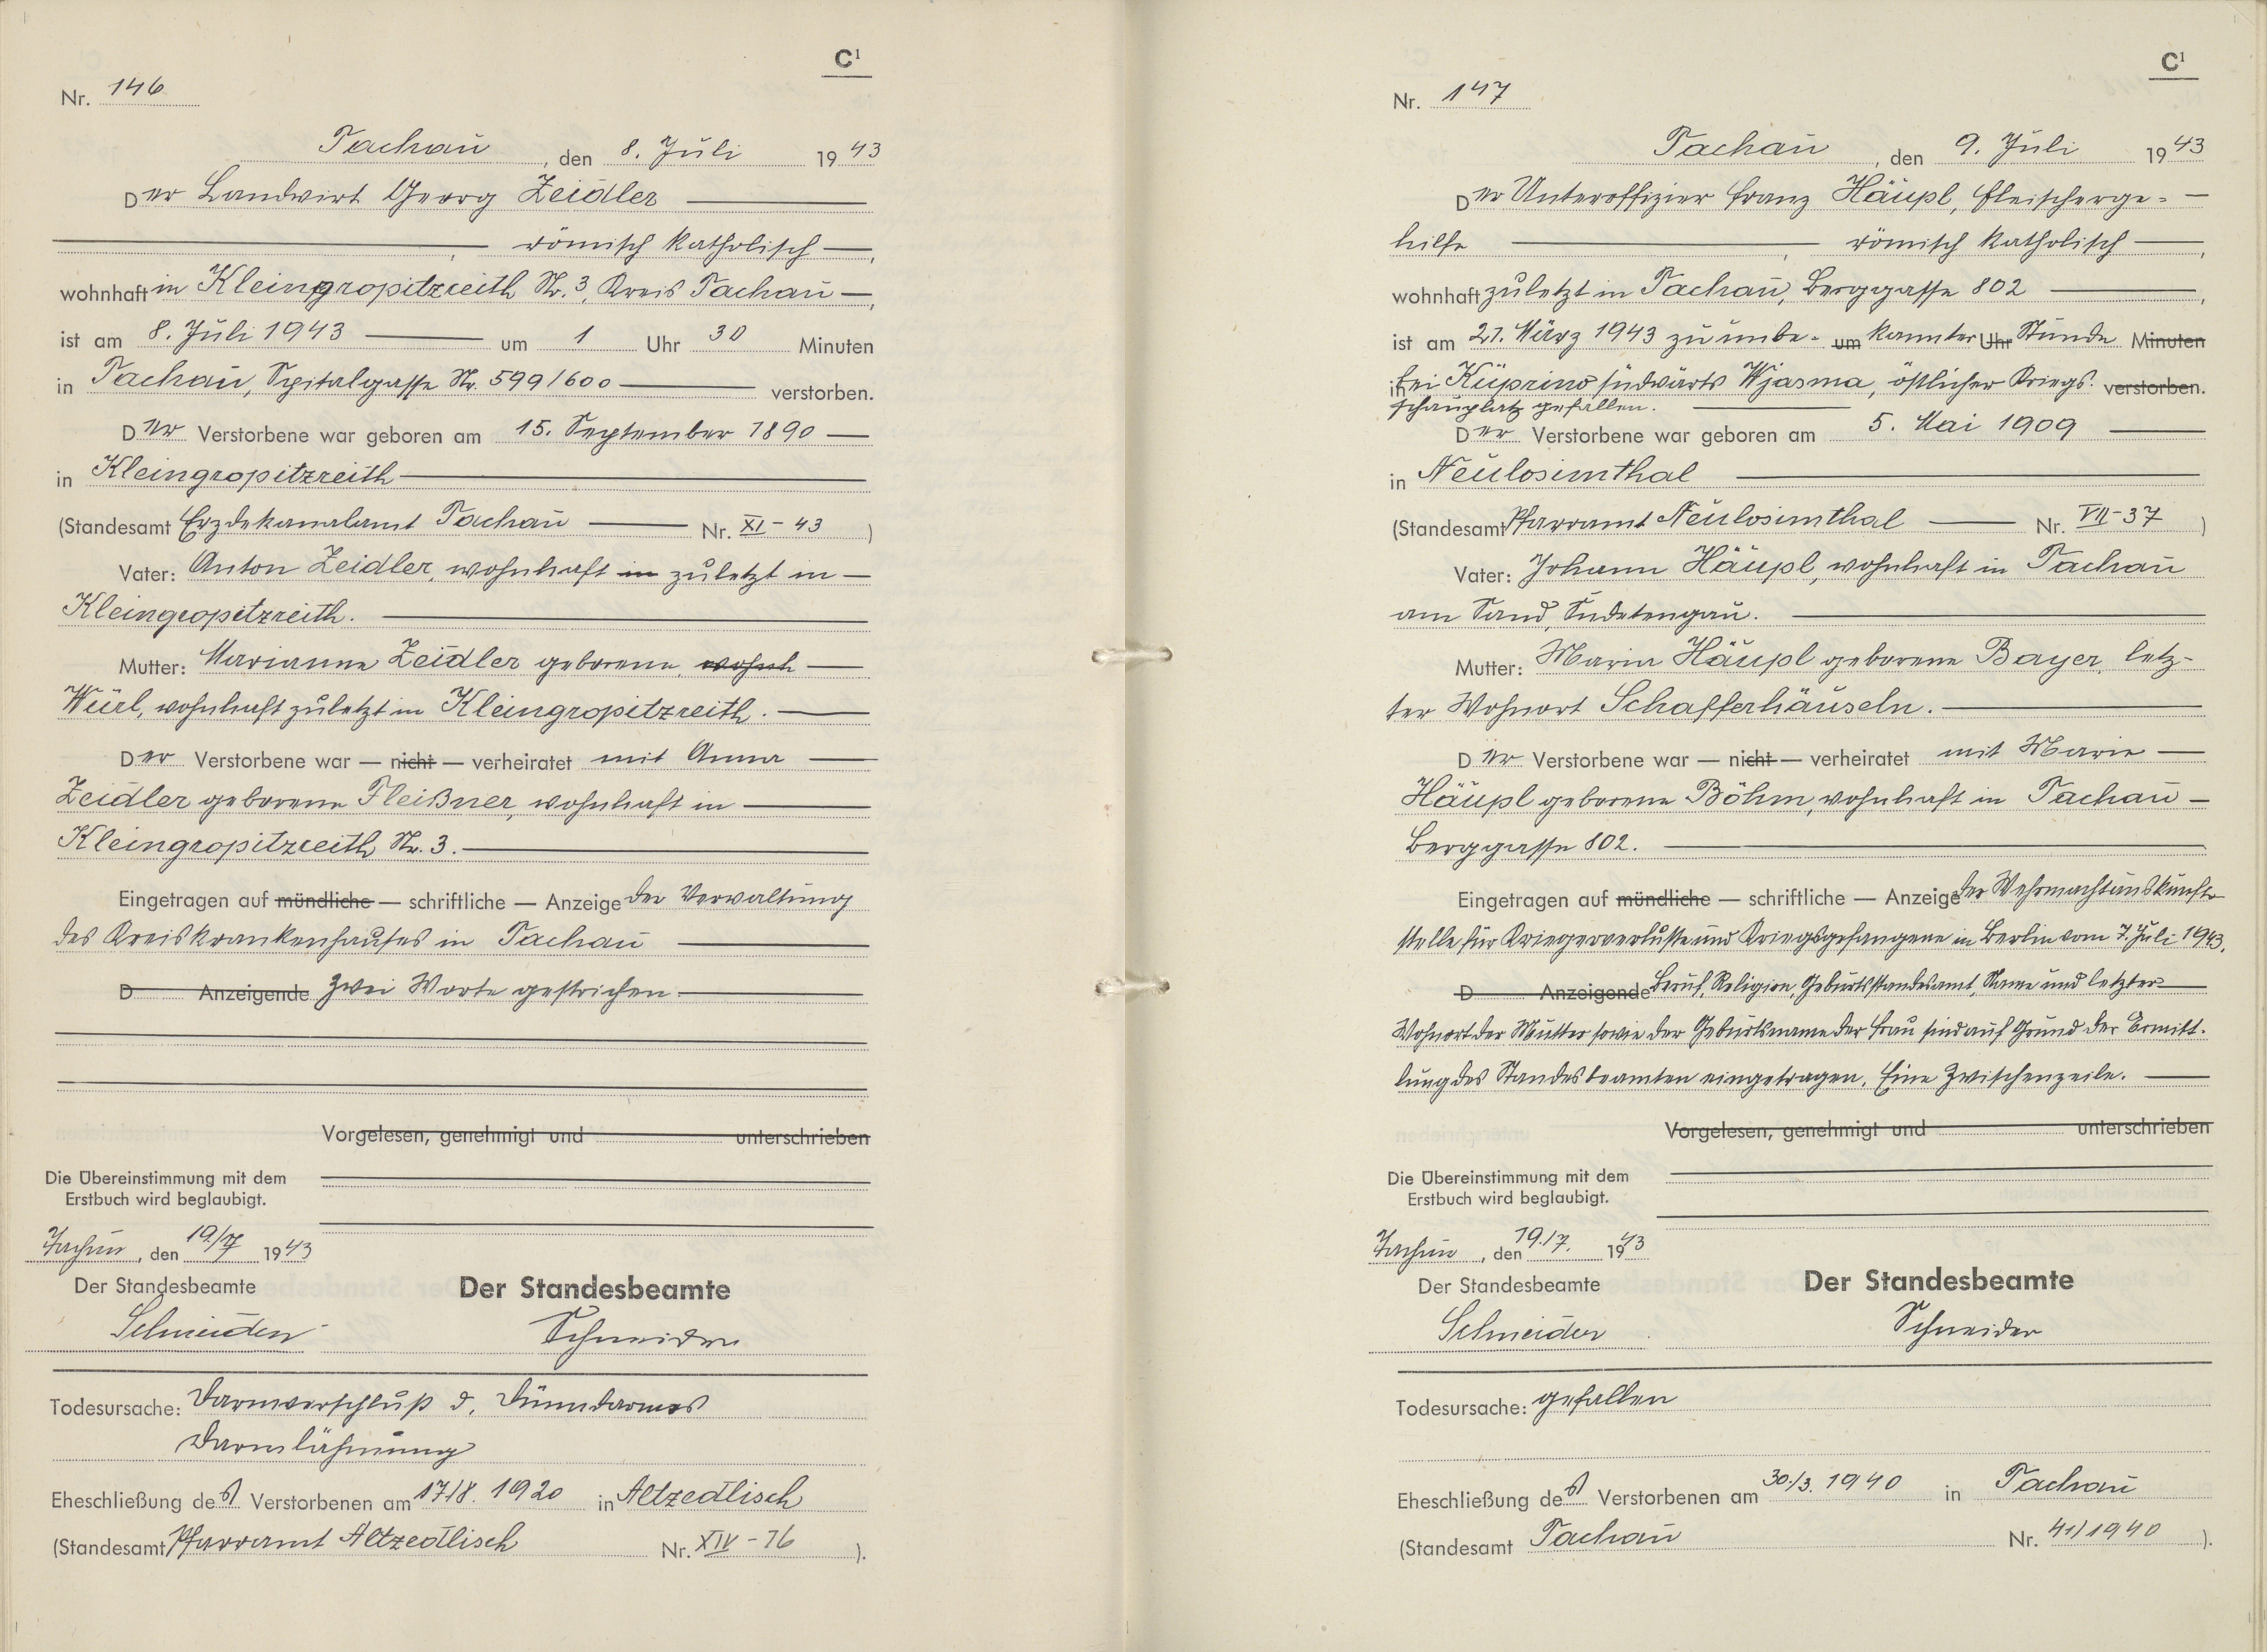 C¹
Nr. 146
Tachau, den 8. Juli 1943
Der Landwirt Georg Zeidler
, römisch katholisch,
wohnhaft in Kleingropitzreith Nr. 3, Kreis Tachau,
ist am 8. Juli 1943 um 1 Uhr 30 Minuten
in Tachau, Spitalgasse Nr. 599/600 verstorben.
Der Verstorbene war geboren am 15. September 1890
in Kleingropitzreith
(Standesamt Erzdekanalamt Tachau Nr. XI-43 )
Vater: Anton Zeidler, wohnhaft in zuletzt in
Kleingropitzreith.
Mutter: Marianne Zeidler geborene wohnh
Würl, wohnhaft zuletzt in Kleingropitzreith.
Der Verstorbene war — nicht — verheiratet mit Anna
Zeidler geborene Fleißner, wohnhaft in
Kleingropitzreith Nr. 3.
Eingetragen auf mündliche — schriftliche — Anzeige der Verwaltung
des Kreiskrankenhauses in Tachau
D Anzeigende Zwei Worte gestrichen.
Vorgelesen, genehmigt und unterschrieben
Die Übereinstimmung mit dem
Erstbuch wird beglaubigt.
Tachau, den 19./7 1943
Der Standesbeamte
Der Standesbeamte
Schneider
Schneider
Todesursache: Darmverschluß d. Dünndarmes
Darmlähmung
Eheschließung des Verstorbenen am 17/8. 1920 in Altzedlisch
(Standesamt Pfarramt Altzedlisch Nr. XIV-76 ).
C¹
Nr. 147
Tachau, den 9. Juli 1943
Der Unteroffizier Franz Häupl, Fleischerge-
hilfe , römisch katholisch,
wohnhaft zuletzt in Tachau, Berggasse 802,
ist am 21. März 1943 zu unbe- um kannter Uhr Stunde Minuten
in bei Küprino südwärts Wjasma, östlicher Kriegs- verstorben.
schauplatz gefallen.
Der Verstorbene war geboren am 5. Mai 1909
in Neulosimthal
(Standesamt Pfarramt Neulosimthal Nr. VII-37 )
Vater: Johann Häupl, wohnhaft in Tachau
am Sand, Sudetengau.
Mutter: Maria Häupl geborene Bayer, letz-
ter Wohnort Schafferhäuseln.
Der Verstorbene war — nicht — verheiratet mit Marie
Häupl geborene Böhm, wohnhaft in Tachau
Berggasse 802.
Eingetragen auf mündliche — schriftliche — Anzeige der Wehrmachtauskunft-
stelle für Kriegerverluste und Kriegsgefangene in Berlin vom 7. Juli 1943.
D Anzeigende Beruf, Religion, Geburtsstandesamt, Name und letzter
Wohnort der Mutter sowie der Geburtsname der Frau sind auf Grund der Ermitt-
lung des Standesbeamten eingetragen. Eine Zwischenzeile.
Vorgelesen, genehmigt und unterschrieben
Die Übereinstimmung mit dem
Erstbuch wird beglaubigt.
Tachau, den 19./7. 1943
Der Standesbeamte
Der Standesbeamte
Schneider
Schneider
Todesursache: gefallen
Eheschließung des Verstorbenen am 30./3. 1940 in Tachau
(Standesamt Tachau Nr. 41/1940 ).